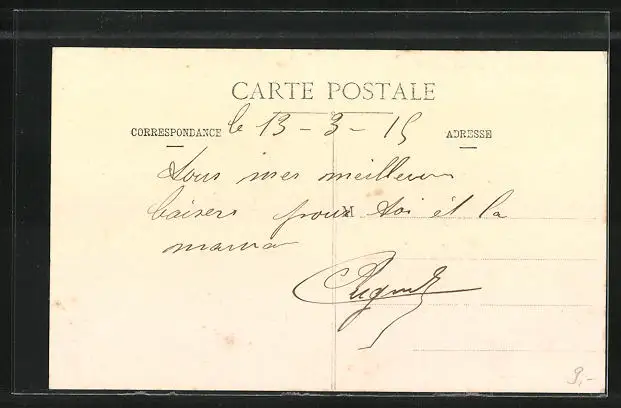 CARTE POSTALE
CORRESPONDANCE
le 13-3-15
ADRESSE
Tous mes meilleurs
baisers pour toi et la
mama
M
9,-